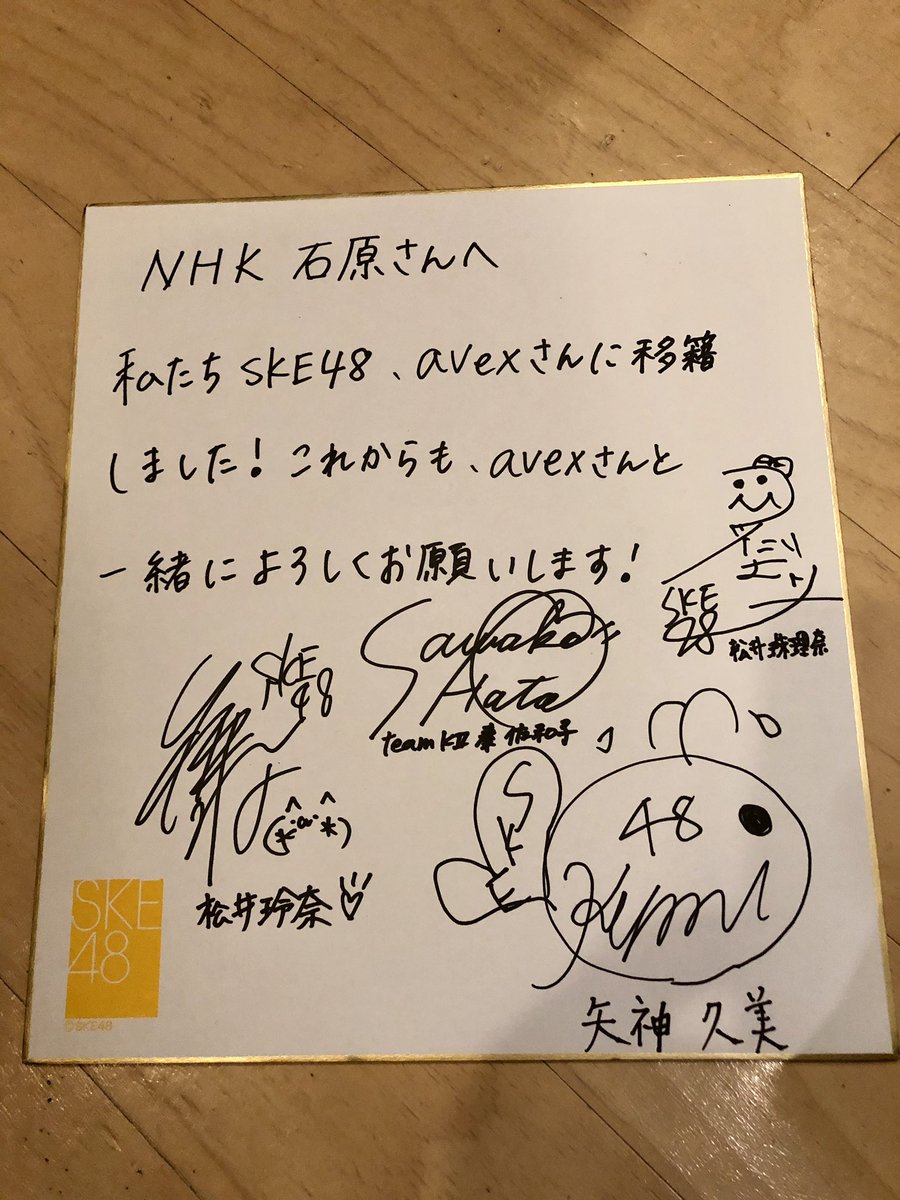 NHK 石原さんへ
私たちSKE48、avexさんに移籍
しました！これからも、avexさんと
一緒によろしくお願いします！
SKE
48
松井珠理奈
Sawako
Hata
teamKⅡ 秦 佐和子
SKE
48
松井玲奈
SKE
48
Kumi
矢神 久美
SKE
48
©SKE48